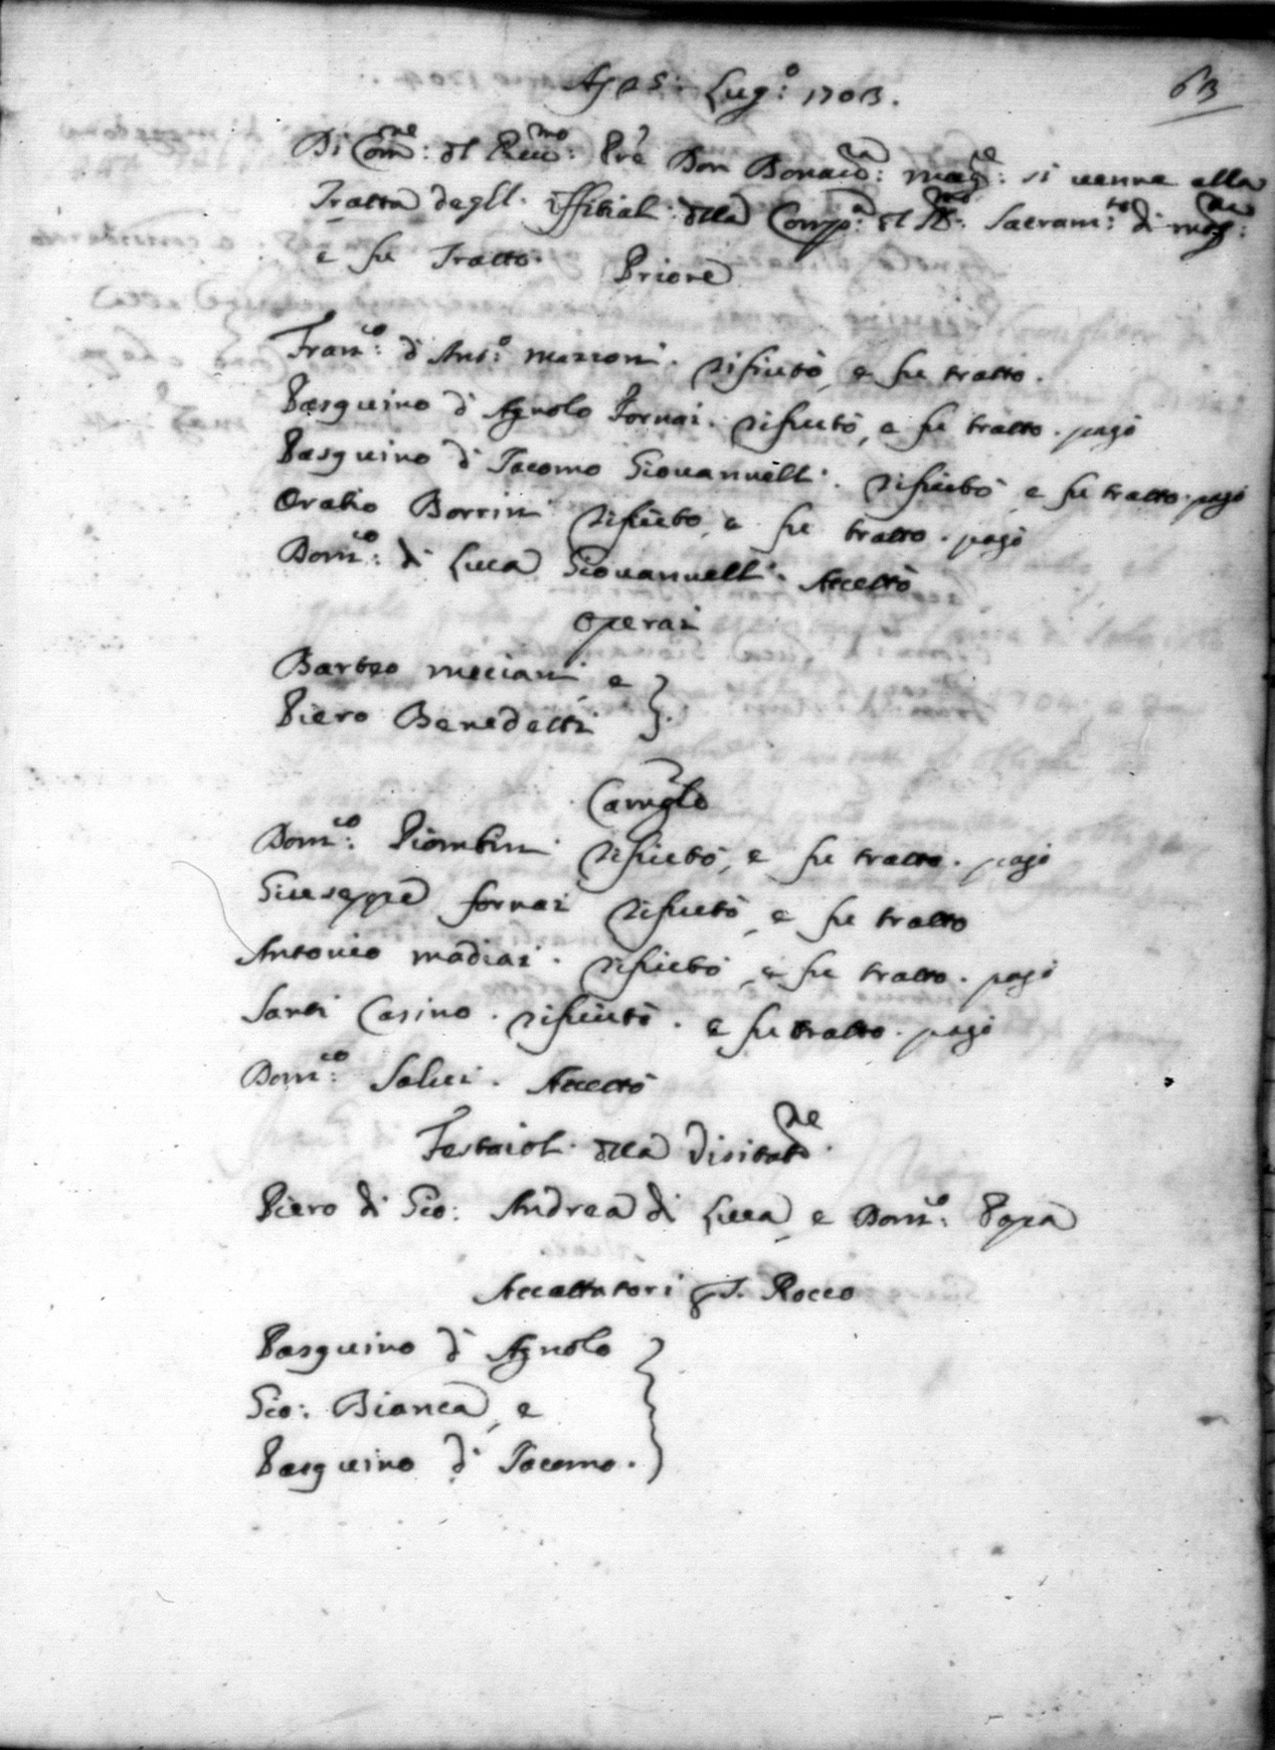 63
Lug:o 1703.
Di Com:ne del Rev:mo Pre Don Bonav:ra Mag:e si venne alla
Tratta degl. uffitial. della Comp:a del SS:mo Sacram:to di
e fu Tratto. Priore
Fran:co d' Ant:o rifiutò, e fu tratto.
Pasquino d' Agnolo Fornai. rifiutò, e fu tratto. pagò
Pasquino d' Jacomo Giovannelli. rifiutò e fu tratto. pagò
Oratio Borrini rifiutò, e fu tratto. pagò
Dom:co di Luca Giovannelli. Accettò
Operai
Barteo meciani, e
Piero Benedetti
Camglo
Dom:co Piombini rifiutò, e fu tratto. pagò
Giuseppe fornai rifiutò, e fu tratto
Antonio madiai. rifiutò, e fu tratto. pagò
Santi Casino. rifiutò. e fu tratto. pagò
Dom:co Salvi. Accettò
Festaiol. della Visitat:ne
Piero di Gio: Andrea di Luca, e Dom:co Papa
Accattatori p S. Rocco
Pasquino d' Agnolo
Gio: Bianca, e
Pasquino d' Jacomo.